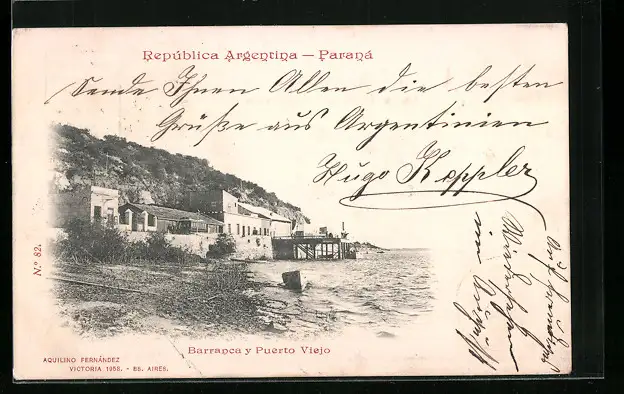 República Argentina — Paraná
Sende Ihnen Allen die besten
Grüße aus Argentinien
Hugo Keppler
Auf
Wiedersehen
im
N.º 82.
Barranca y Puerto Viejo
AQUILINO FERNÁNDEZ
VICTORIA 1058. - BS. AIRES.